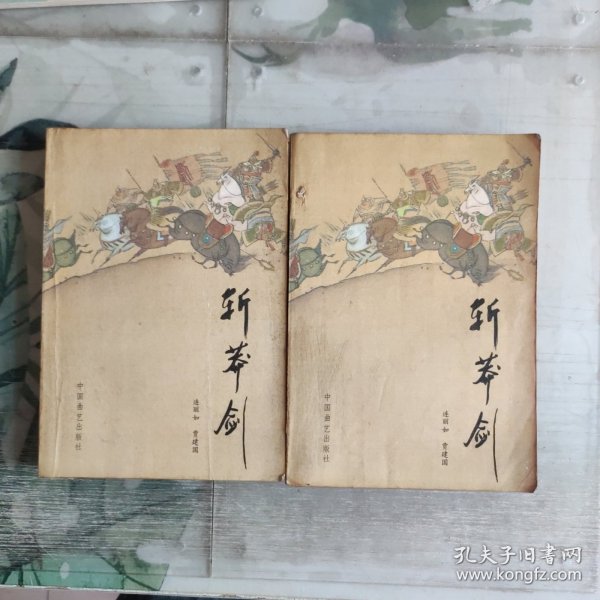 斩莽剑
连丽如 贾建国
中国曲艺出版社
斩莽剑
连丽如 贾建国
中国曲艺出版社
孔夫子旧书网
www.kongfz.com